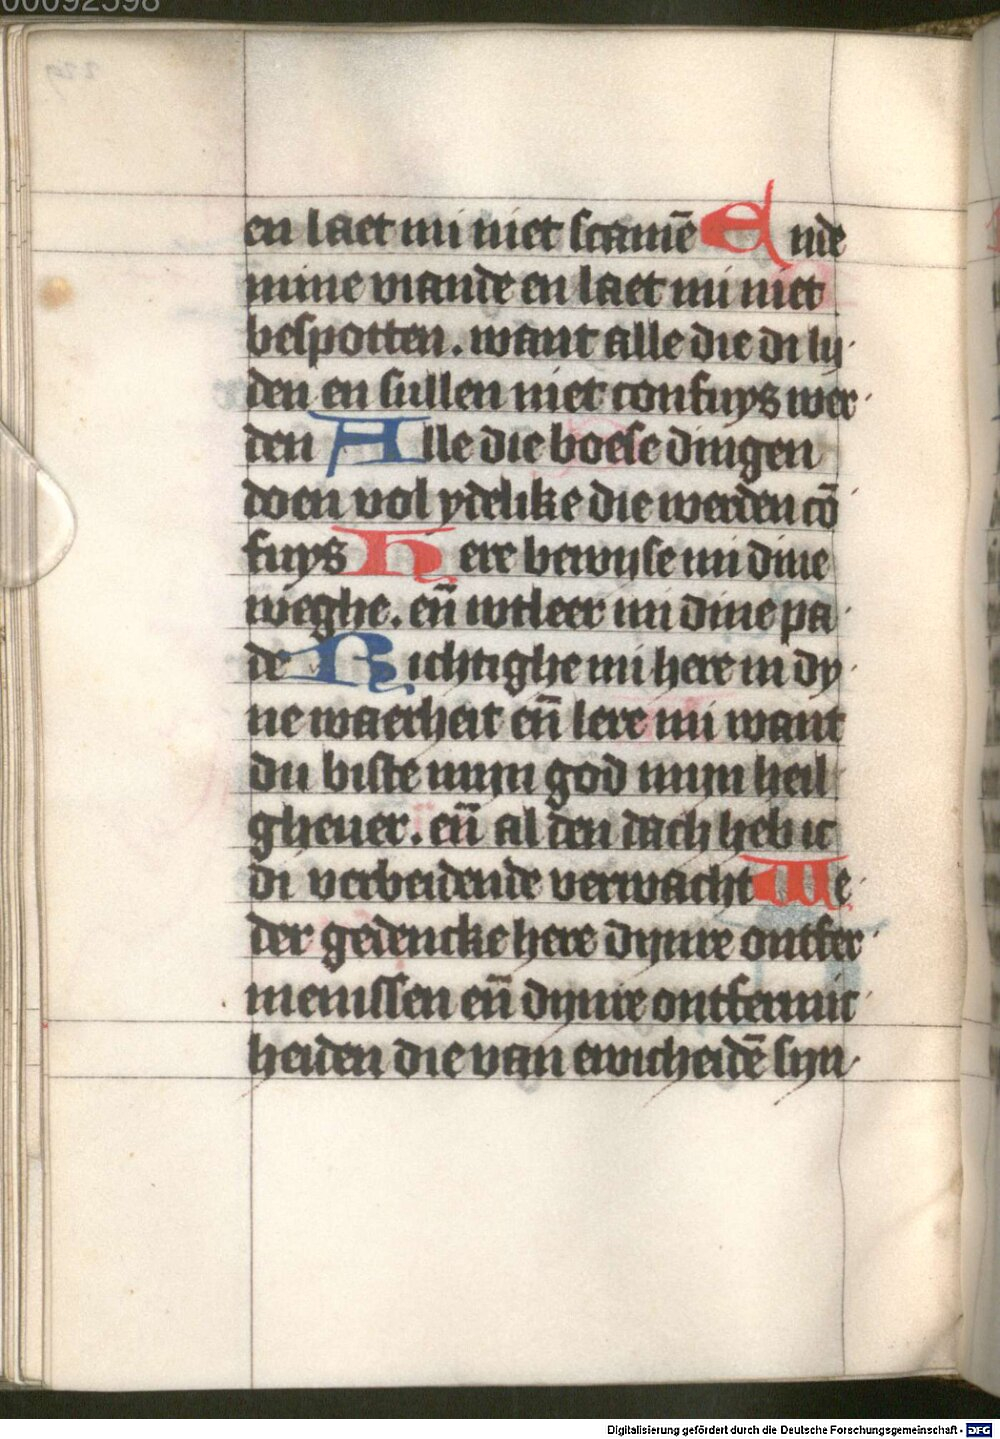 00092598
en laet mi niet scamē Ende
mine viande en laet mi niet
bespotten. want alle die di ly
den en sullen niet confuys wer
den Alle die boese dingen
doen vol ydelike die werden cō
fuys Here bewijse mi dine
weghe. en̄ wtleer mi dine pa
de Richtighe mi here in dy
ne waerheit en̄ lere mi want
du biste mijn god mijn heil
gheuer. en̄ al den dach heb ic
di verbeidende verwacht We
der gedencke here dijnre ontfer
menissen en̄ dijnre ontfermic
heiden die van ewicheidē sijn
Digitalisierung gefördert durch die Deutsche Forschungsgemeinschaft - DFG